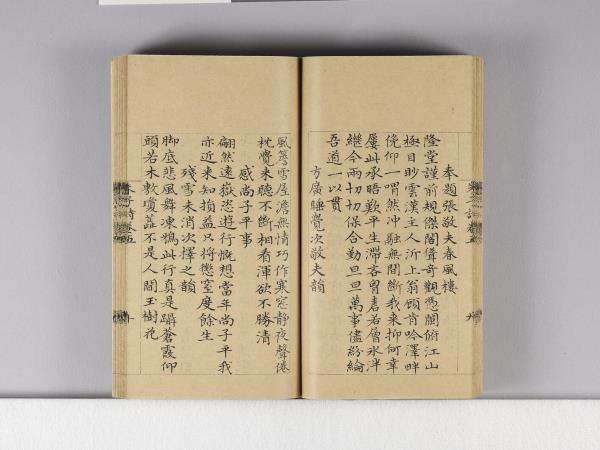 奉題張敬夫春風樓
隆堂謹前規傑閣聳奇觀憑闌俯江山
極目眇雲漢主人沂上翁顧肯吟澤畔
俛仰一喟然沖融無間斷我來抑何幸
屢此承晤歎平生滯吝胷春若層氷泮
繼今兩切切保合勤旦旦萬事儘紛綸
吾道一以貫
方廣睡覺次敬夫韻
風簷雪屋澹無情巧作寒窓靜夜聲倦
枕覺來聽不斷相看渾欲不勝清
感尚子平事
翩然遠嶽恣遊行慨想當年尚子平我
亦近來知損益只將懲窒度餘生
殘雪未消次擇之韻
脚底悲風舞凍鴉此行真是躡蒼霞仰
頭若木敷瓊蕋不是人間玉樹花